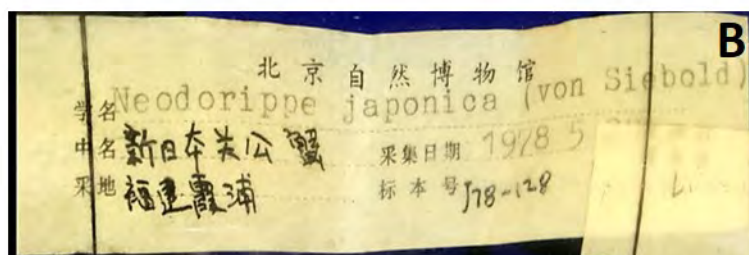 B
北京自然博物馆
学名 Neodorippe japonica (von Siebold)
中名 新日本关公蟹 采集日期 1978 5
采地 福建霞浦 标本号 J78-128